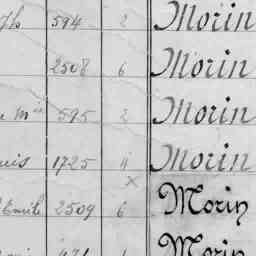 594 2 Morin
2508 6 Morin
595 2 Morin
1725 4 Morin
Emile 2509 6 Morin
Morin